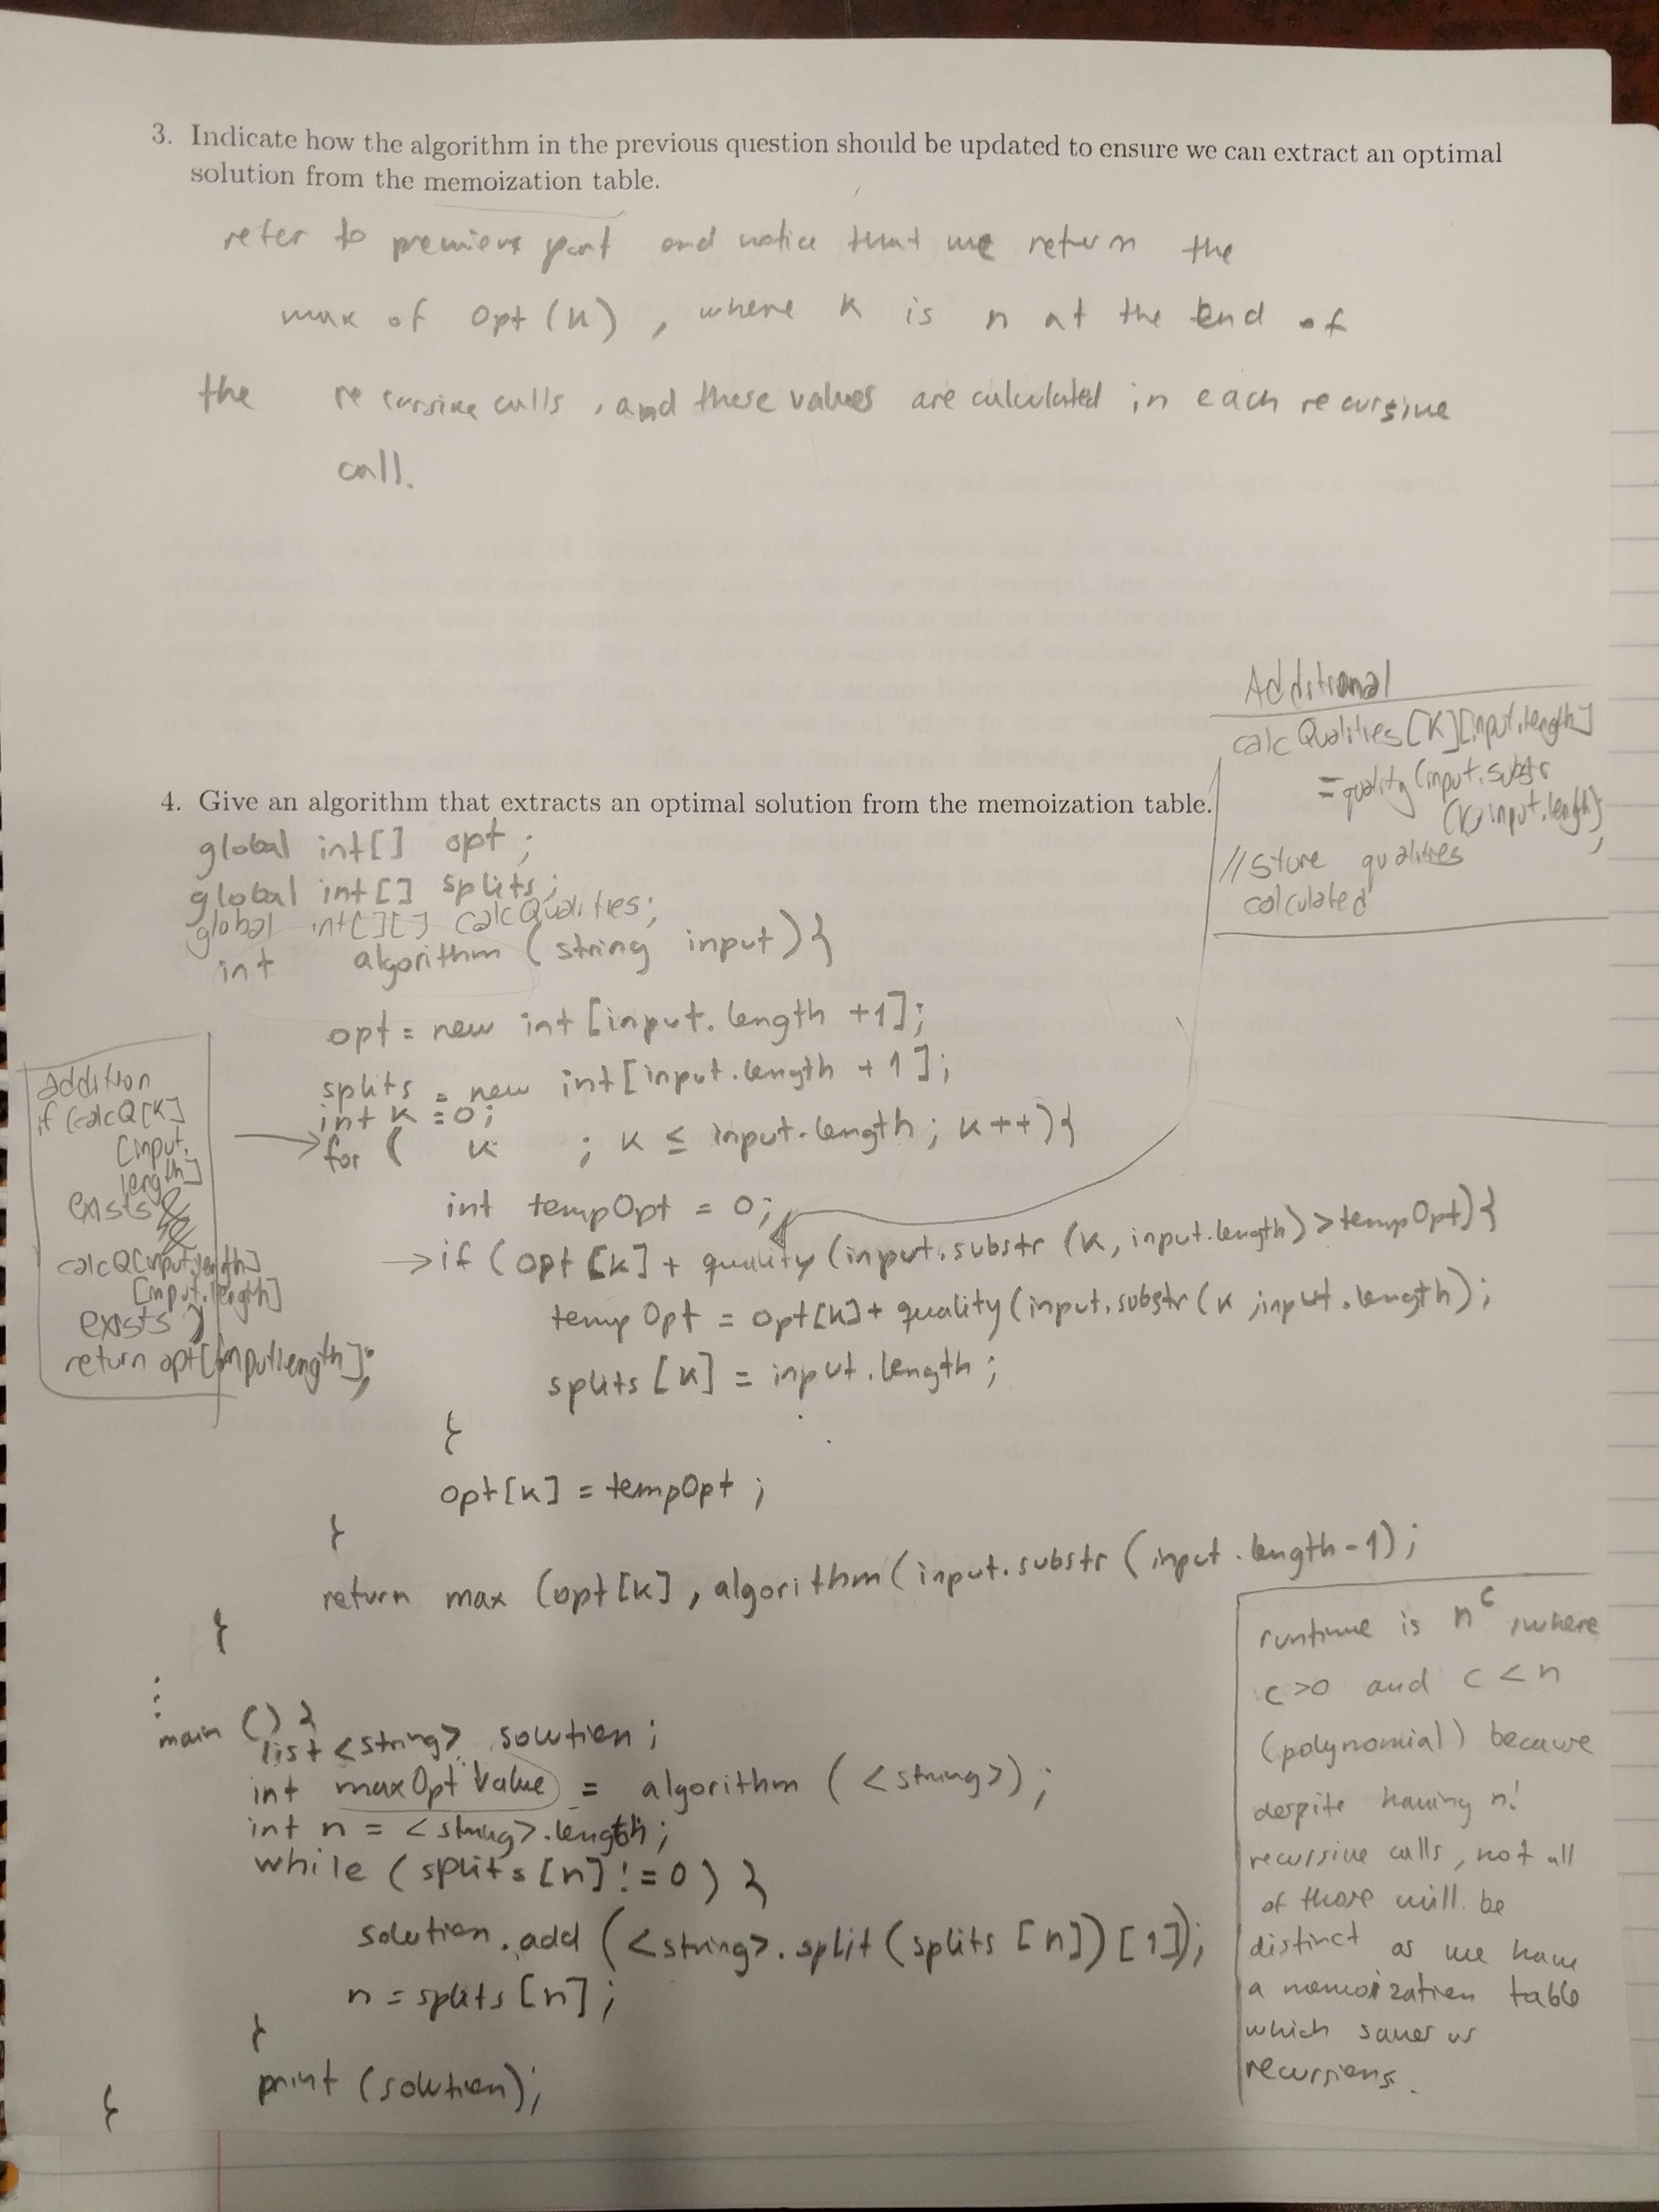 3. Indicate how the algorithm in the previous question should be updated to ensure we can extract an optimal
solution from the memoization table.
refer to premiere part and notice that we return the
max of Opt(k), where k is n at the end of
the recursive calls, and these values are calculated in each recursive
call.
Additional
calcQualities[K][input.length]
=quality(input.substr
(K,input.length);
//Store qualities
calculated
4. Give an algorithm that extracts an optimal solution from the memoization table.
global int[] opt;
global int[] splits;
global int[][] calcQualities;
int algorithm (string input) {
opt = new int [input.length +1];
splits = new int[input.length + 1];
int k = 0;
for ( k ; k ≤ input.length; k++){
int tempOpt = 0;
if (opt[k] + quality (input.substr (k, input.length) > tempOpt) {
tempOpt = opt[k] + quality (input.substr (k, input.length);
splits [k] = input.length;
}
opt[k] = tempOpt;
}
return max (opt[k], algorithm(input.substr (input.length-1);
}
addition
if (calcQ[K]
[input.
length]
exists
calcQ[input.length]
[input.length]
exists)
return opt[input.length];
main () {
list <string> solution;
int maxOptValue = algorithm (<string>);
int n = <string>.length;
while (splits [n] != 0) {
solution.add (<string>.split (splits [n]) [1]);
n = splits [n];
}
print (solution);
}
runtime is n^c, where
c>0 and c<n
(polynomial) because
despite having n!
recursive calls, not all
of those will be
distinct as we have
a memoization table
which saves us
recursions.